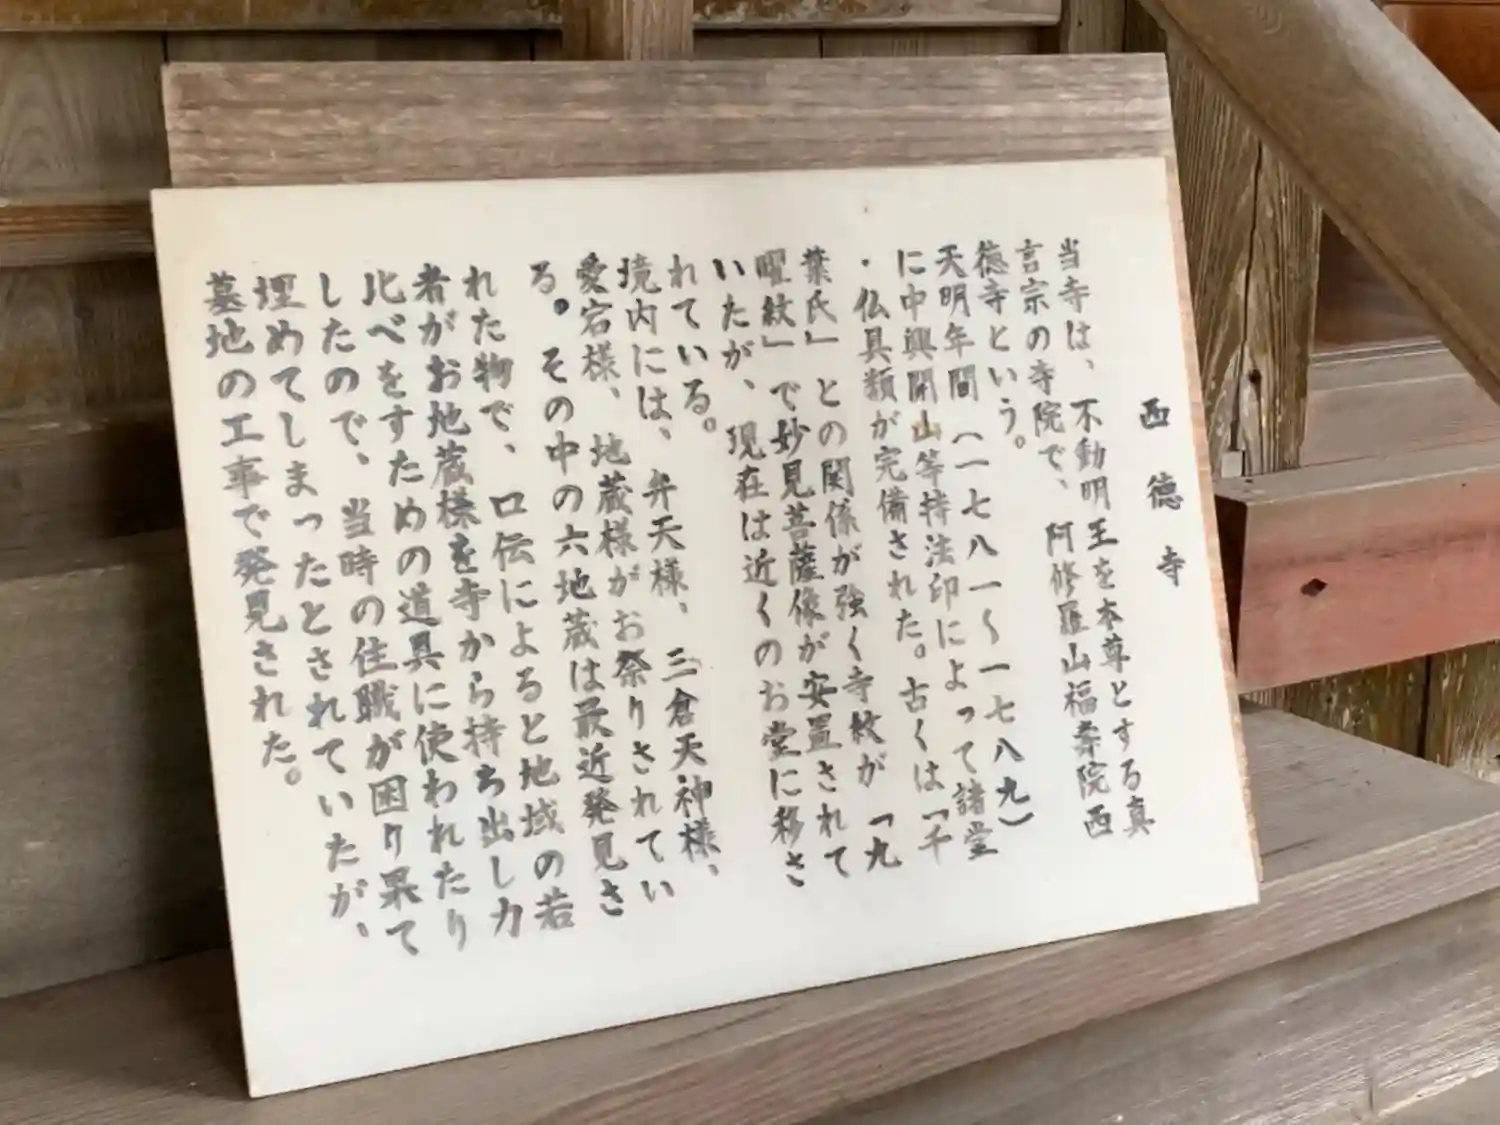 西徳寺
当寺は、不動明王を本尊とする真
言宗の寺院で、阿修羅山福寿院西
徳寺という。
天明年間(一七八一〜一七八九)
に中興開山等持法印によって諸堂
・仏具類が完備された。古くは「千
葉氏」との関係が強く寺紋が「九
曜紋」で妙見菩薩像が安置されて
いたが、現在は近くのお堂に移さ
れている。
境内には、弁天様、三倉天神様、
愛宕様、地蔵様がお祭りされてい
る。その中の六地蔵は最近発見さ
れた物で、口伝によると地域の若
者がお地蔵様を寺から持ち出し力
比べをすための道具に使われたり
したので、当時の住職が困り果て
埋めてしまったとされていたが、
墓地の工事で発見された。